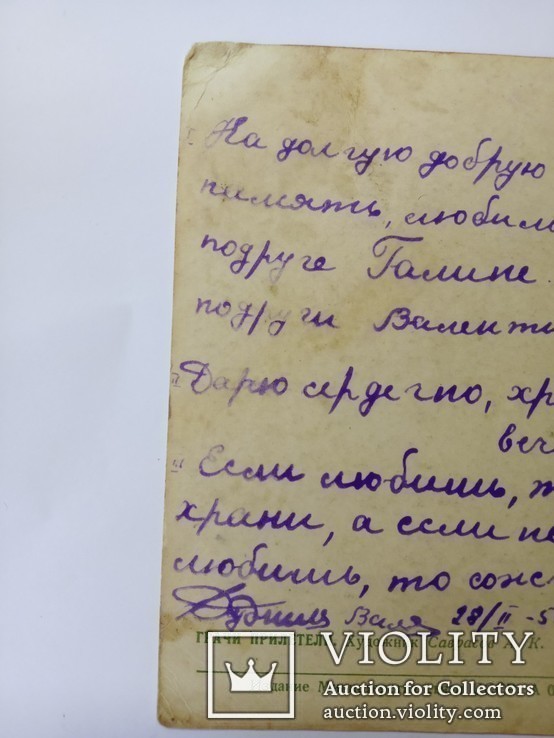 На долгую добрую
память, любим
подруге Галине.
подруги Валенти
Дарю сердечно, хр
веч
Если любишь, т
храни, а если не
любишь, то сож
Валя 28/II -5
ГРАЧИ ПРИЛЕТЕЛИ. Художник Саврасов А. К.
Издание
VIOLITY
Auction for Collectors
auction.violity.com